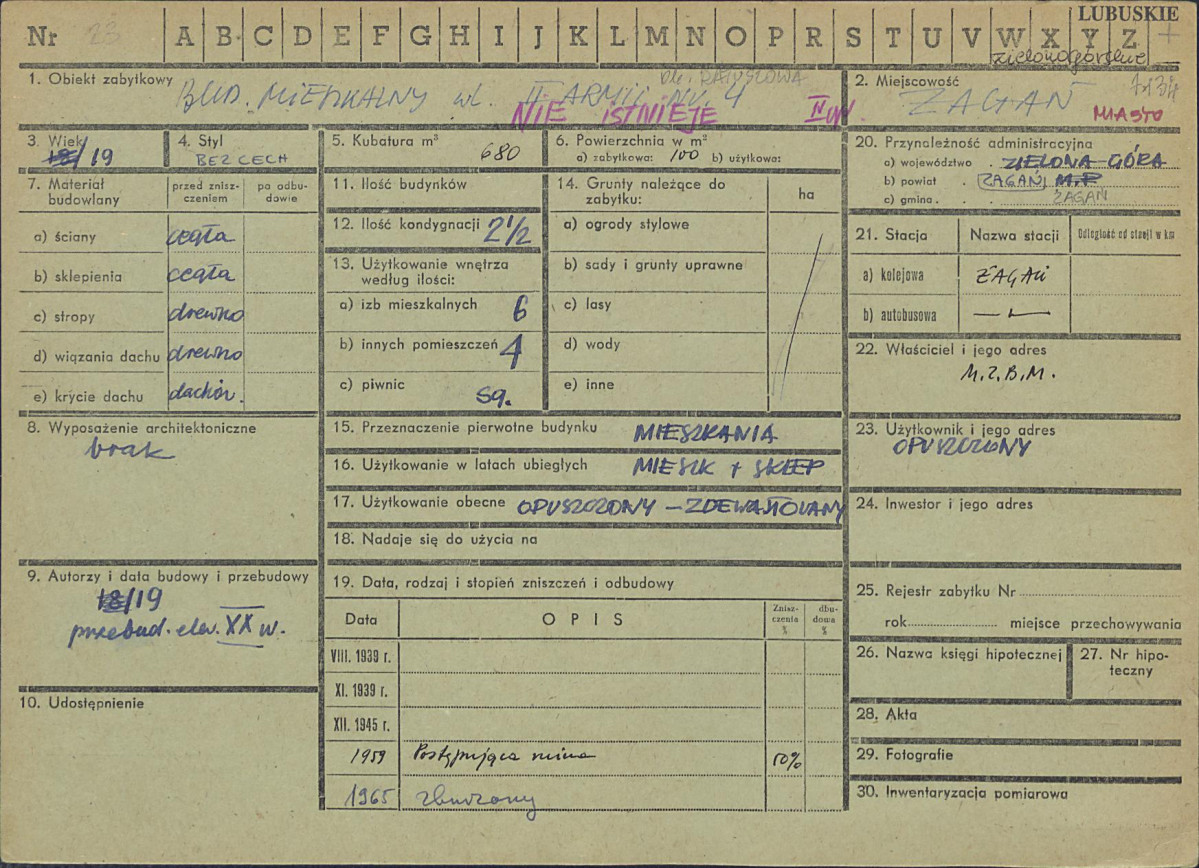 LUBUSKIE
Nr 23 A B C D E F G H I J K L M N O P R S T U V W X Y Z +
zielonogórskie
1. Obiekt zabytkowy BUD. MIESZKALNY ul. II ARMII Nr. 4
ob. RATUSZOWA
NIE ISTNIEJE
2. Miejscowość ŻAGAŃ
MIASTO
3. Wiek 18/19
4. Styl BEZ CECH
5. Kubatura m³ 680
6. Powierzchnia w m²
a) zabytkowa: 100 b) użytkowa:
20. Przynależność administracyjna
a) województwo . ZIELONA GÓRA
b) powiat . ŻAGAŃ M.P
c) gmina . . . ŻAGAŃ
7. Materiał budowlany
przed zniszczeniem
po odbudowie
a) ściany cegła
b) sklepienia cegła
c) stropy drewno
d) wiązania dachu drewno
e) krycie dachu dachów.
11. Ilość budynków
12. Ilość kondygnacji 2 1/2
13. Użytkowanie wnętrza
według ilości:
a) izb mieszkalnych 6
b) innych pomieszczeń 4
c) piwnic są.
14. Grunty należące do
zabytku:
ha
a) ogrody stylowe
b) sady i grunty uprawne
c) lasy
d) wody
e) inne
21. Stacja Nazwa stacji Odległość od stacji w km
a) kolejowa ŻAGAŃ
b) autobusowa
22. Właściciel i jego adres
M.Z.B.M.
8. Wyposażenie architektoniczne
brak
15. Przeznaczenie pierwotne budynku MIESZKANIA
16. Użytkowanie w latach ubiegłych MIESZK + SKLEP
17. Użytkowanie obecne OPUSZCZONY – ZDEWASTOWANY
18. Nadaje się do użycia na
23. Użytkownik i jego adres
OPUSZCZONY
24. Inwestor i jego adres
9. Autorzy i data budowy i przebudowy
18/19
przebud. elew. XX w.
10. Udostępnienie
19. Data, rodzaj i stopień zniszczeń i odbudowy
Data OPIS Zniszczenia % dbudowa %
VIII. 1939 r.
XI. 1939 r.
XII. 1945 r.
1959 Postępująca ruina 50%
1965 zburzony
25. Rejestr zabytku Nr
rok miejsce przechowywania
26. Nazwa księgi hipotecznej
27. Nr hipoteczny
28. Akta
29. Fotografie
30. Inwentaryzacja pomiarowa